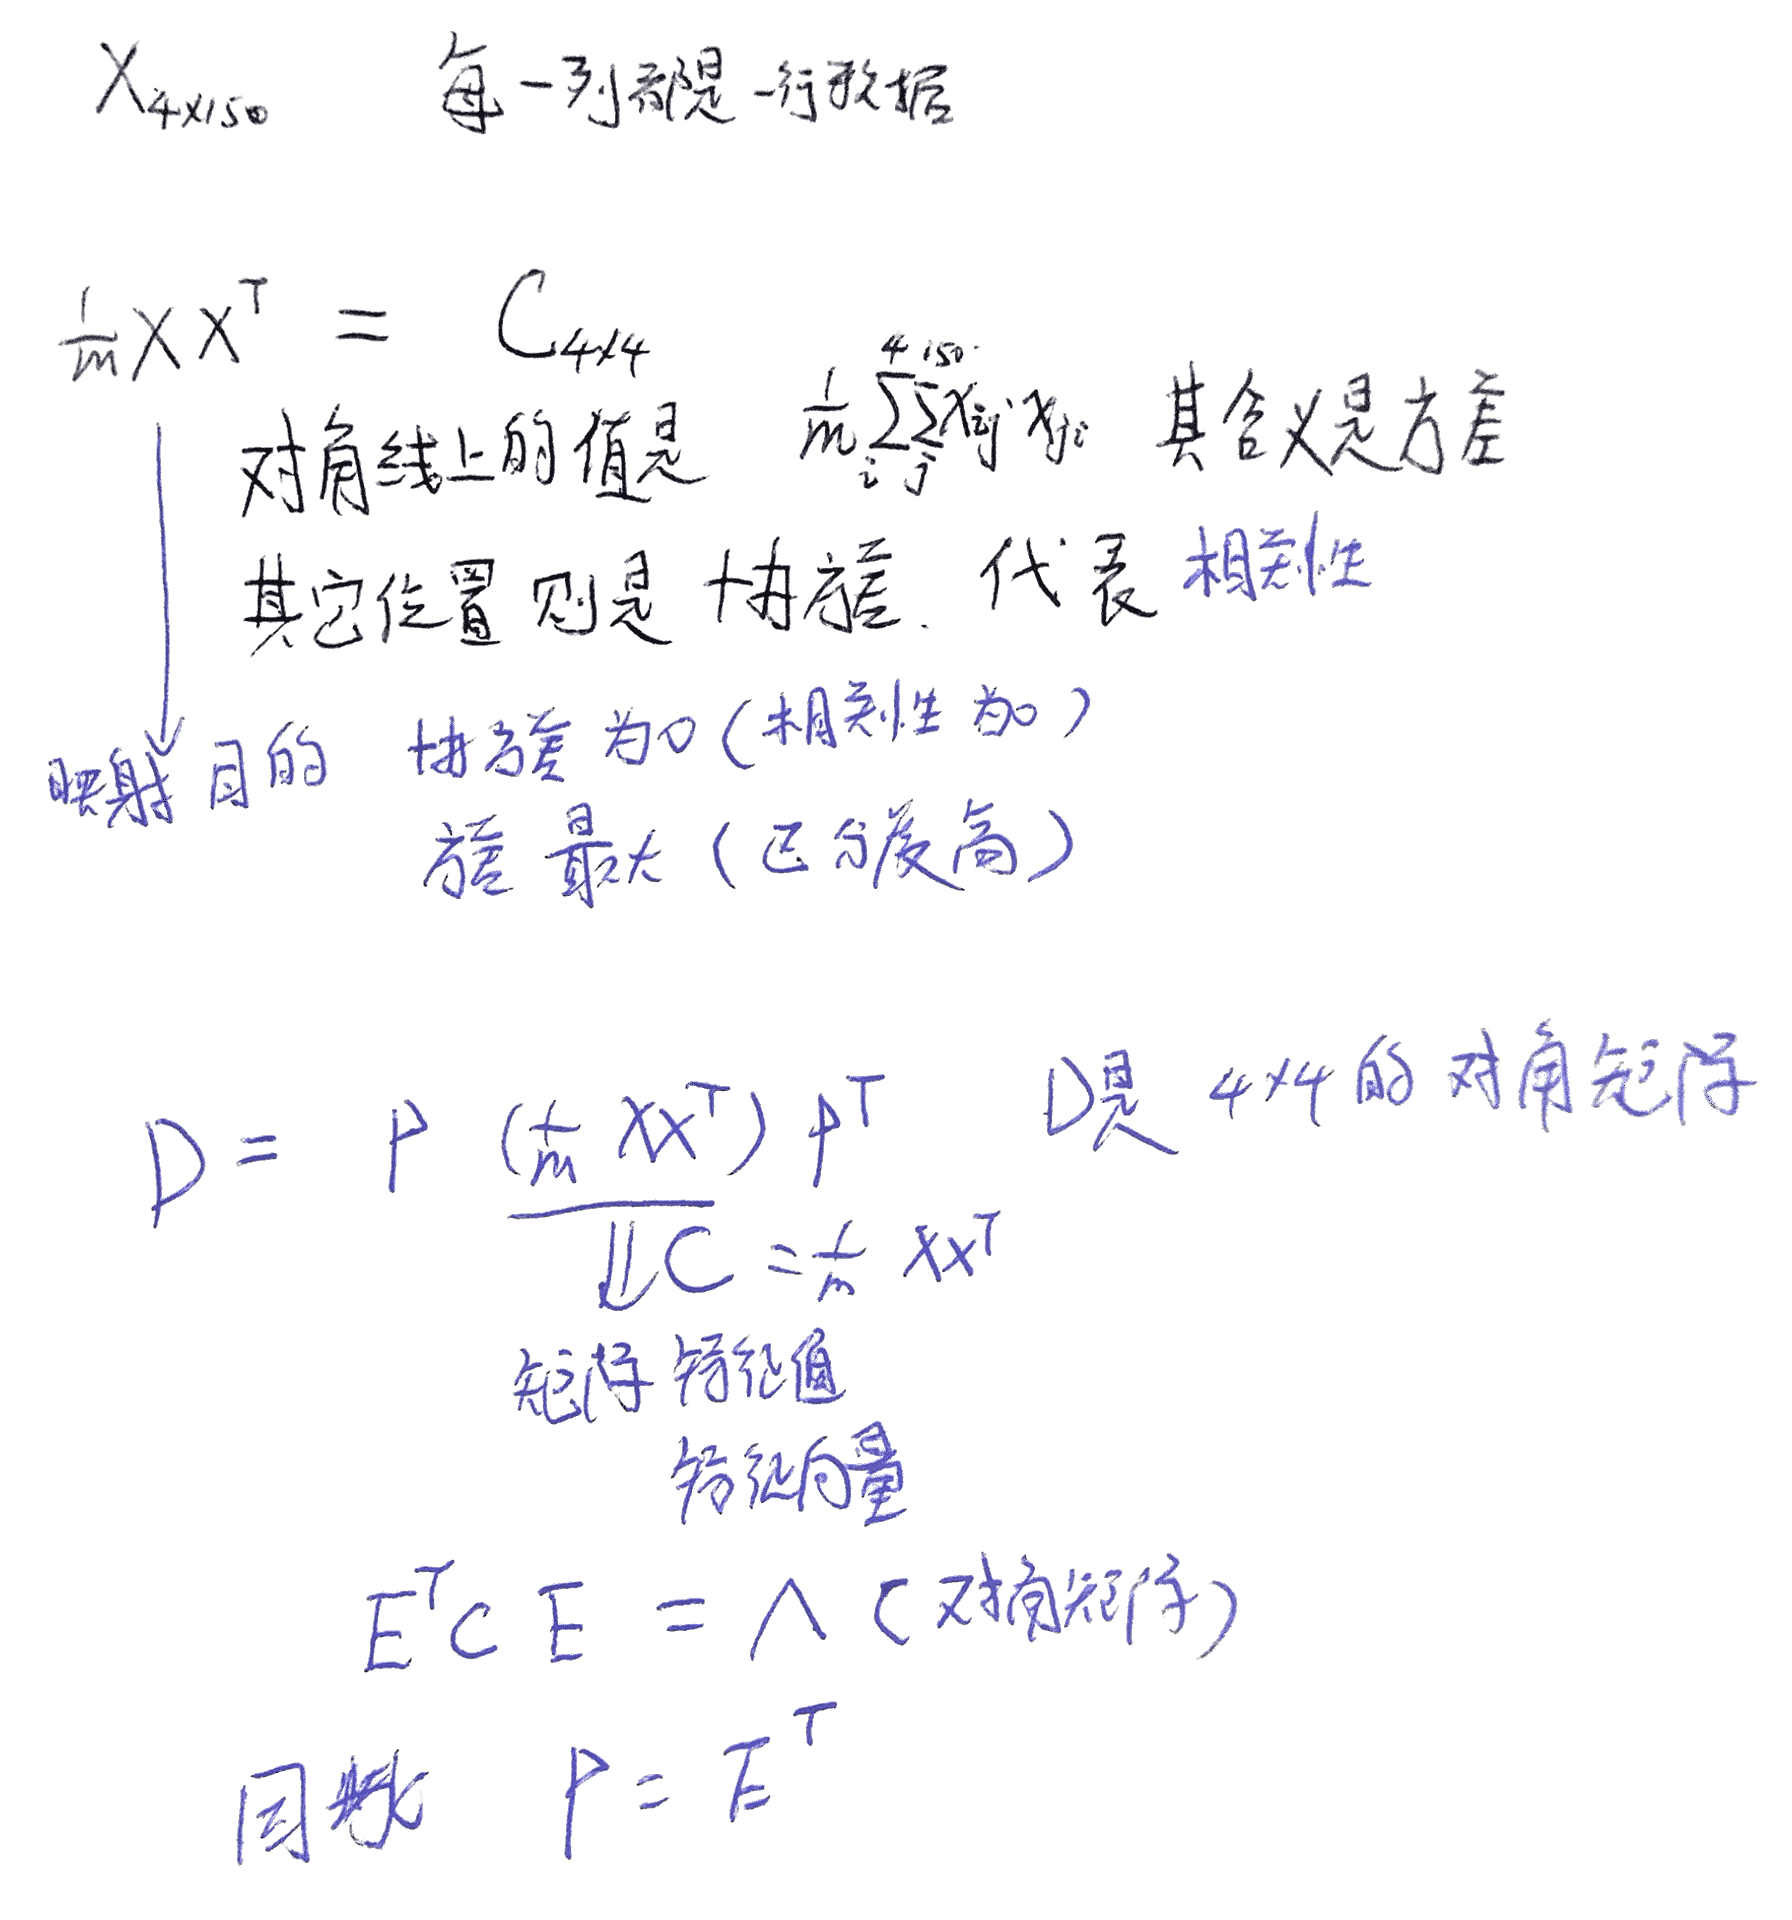 X₄ₓ₁₅₀ 每一列都是一行数据
1/m X Xᵀ = C₄ₓ₄
对角线上的值是 1/m ∑ᵢ⁴ ∑ⱼ¹⁵⁰ xᵢⱼ xⱼᵢ 其含义是方差
其它位置则是协方差. 代表相关性
映射目的 协方差为0(相关性为0)
方差最大(区分度高)
D = P (1/m XXᵀ) Pᵀ D是 4×4 的对角矩阵
⇓ C = 1/m XXᵀ
矩阵特征值
特征向量
Eᵀ C E = Λ (对角矩阵)
因此 P = Eᵀ